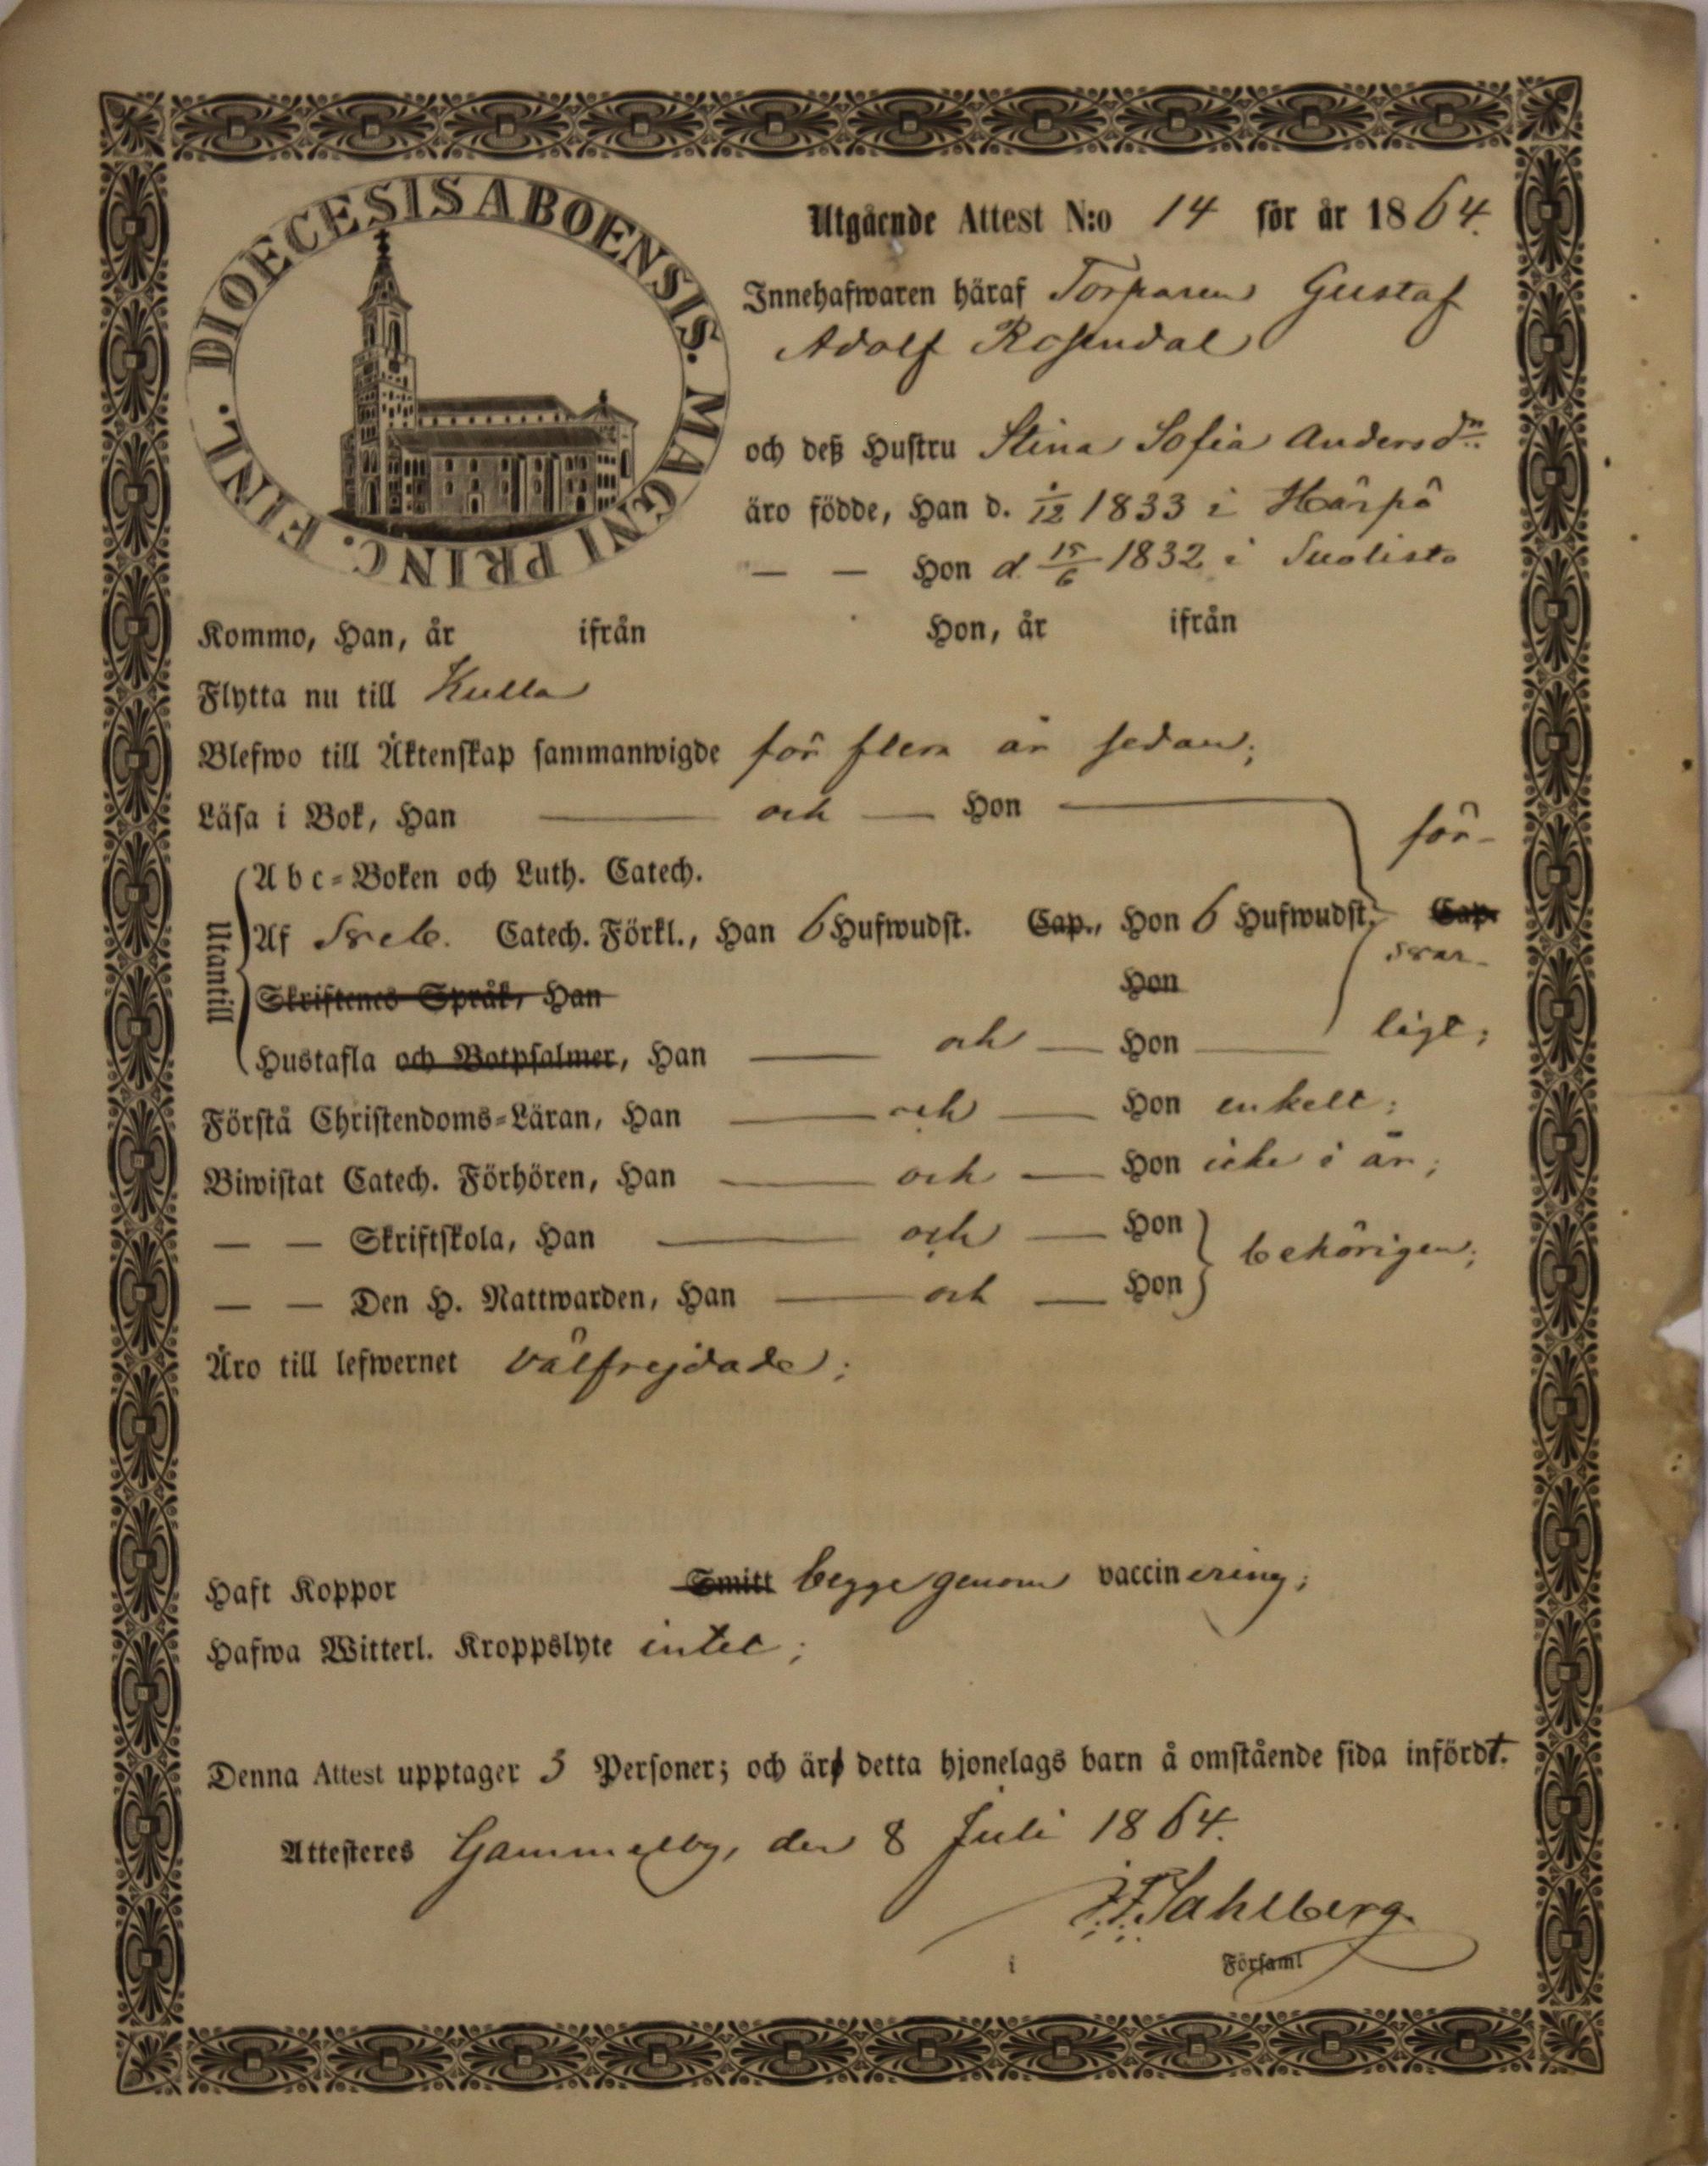 DIOECESIS ABOENSIS. MAGNI PRINC. FINL.
Utgående Attest N:o 14 för år 1864.
Innehafwaren häraf Torparen Gustaf
Adolf Rosendal
och deß Hustru Stina Sofia Andersdn.
äro födde, Han d. 1/12 1833 i Härpö
— — Hon d. 15/6 1832 i Suolisto
Kommo, Han, år ifrån Hon, år ifrån
Flytta nu till Kulla
Blefwo till Äktenskap sammanwigde för flera år sedan;
Läsa i Bok, Han — och — Hon — för-
Utantill
Abc-Boken och Luth. Catech.
Af Sveb. Catech. Förkl., Han 6 Hufwudst. Cap., Hon 6 Hufwudst. Cap.
svar-
Skriftenes Språk, Han Hon
Hustafla och Botpsalmer, Han — och — Hon — ligt;
Förstå Christendoms-Läran, Han — och — Hon enkelt;
Biwistat Catech. Förhören, Han — och — Hon icke i år;
— — Skriftskola, Han — och — Hon
behörigen;
— — Den H. Nattwarden, Han — och — Hon
Äro till lefwernet välfrejdade;
Haft Koppor Smitt begge genom vaccinering;
Hafwa Witterl. Kroppslyte intet;
Denna Attest upptager 3 Personer; och äro detta hjonelags barn å omstående sida infördt.
Attesteres Gammelby, den 8 Juli 1864.
F.F. Sahlberg.
i Församl